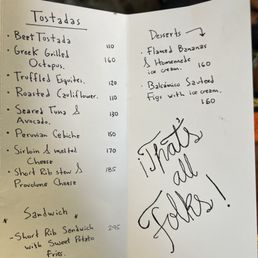 Tostadas
• Beet Tostada 110
• Greek Grilled
Octopus. 160
• Truffled Esquites. 120
• Roasted Cauliflower. 110
• Seared Tuna &
Avocado. 130
• Peruvian Cebiche 150
• Sirloin & melted
Cheese 170
• Short Rib stew &
Provolone Cheese 185
Sandwich
- Short Rib Sandwich
with Sweet Potato
Fries. 295
Desserts
• Flamed Bananas
& Homemade
ice cream. 160
• Balsámico Sauteed
Figs with ice cream.
160
¡That's
all
Folks!